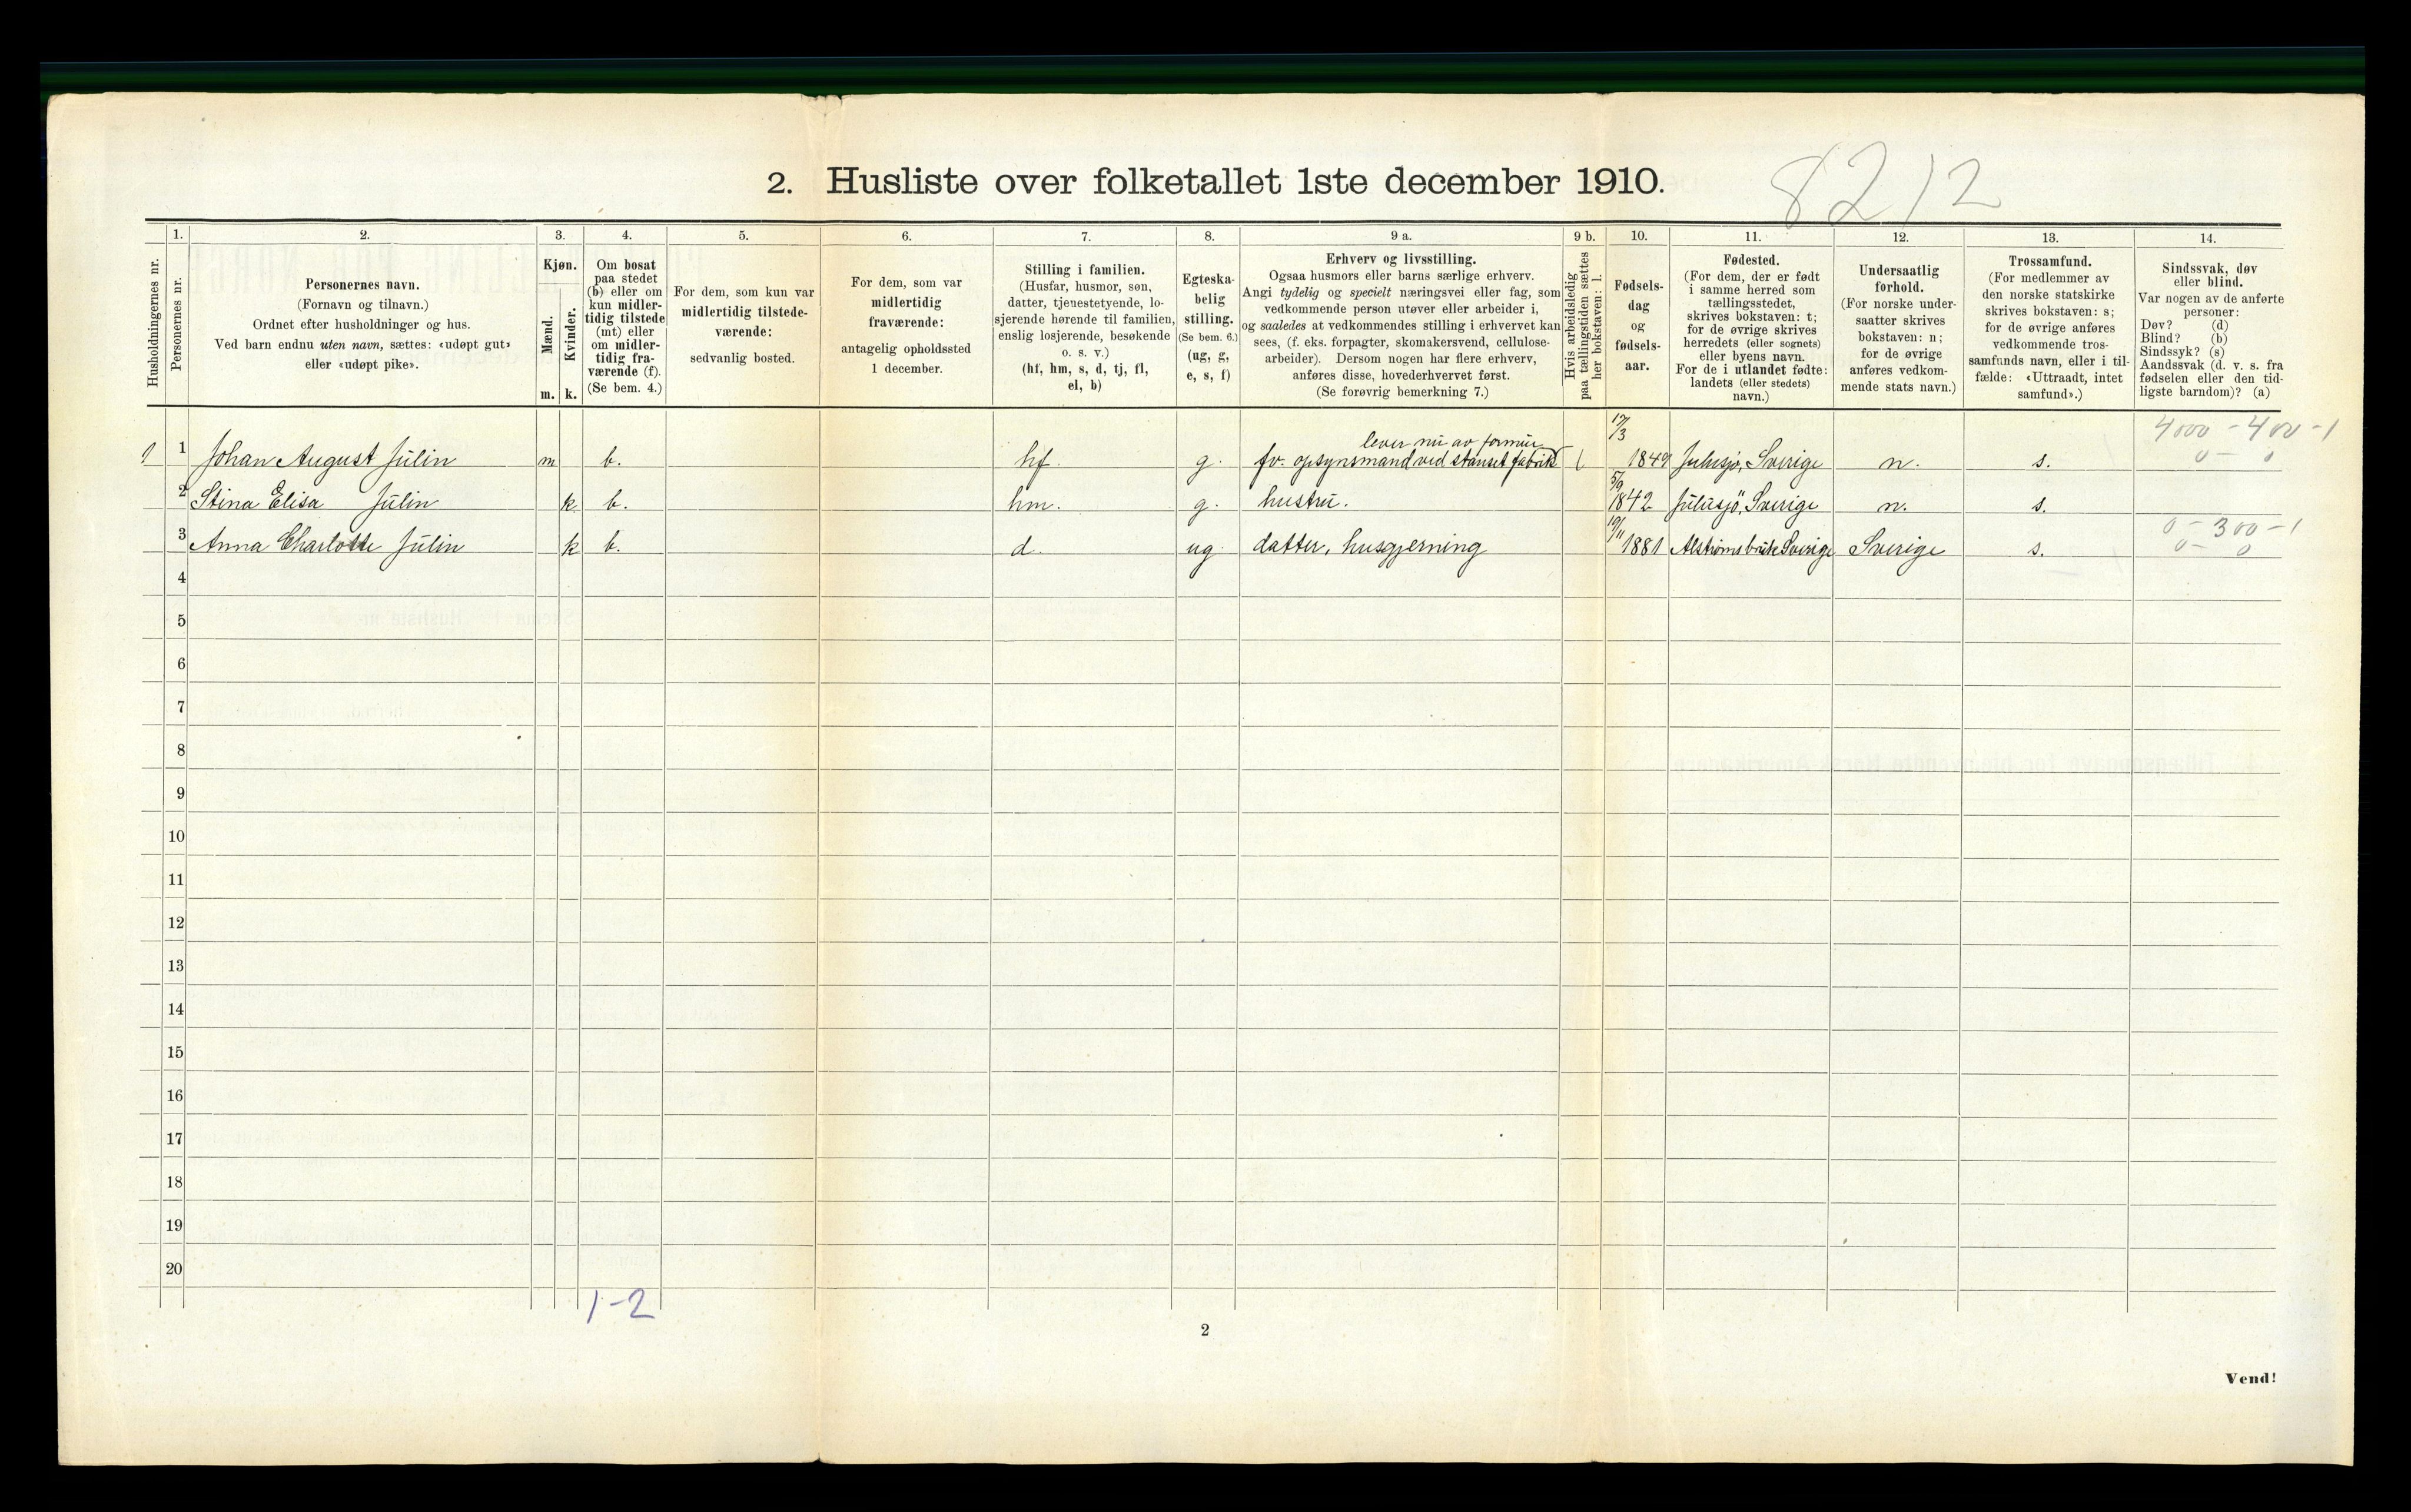 8212
2. Husliste over folketallet 1ste december 1910.
Husholdningernes nr.
1. Personernes nr.
2. Personernes navn.
(Fornavn og tilnavn.)
Ordnet efter husholdninger og hus.
Ved barn endnu uten navn, sættes: «udøpt gut»
eller «udøpt pike».
3. Kjøn.
Mænd. m.
Kvinder. k.
4. Om bosat
paa stedet
(b) eller om
kun midler-
tidig tilstede
(mt) eller
om midler-
tidig fra-
værende (f).
(Se bem. 4.)
5. For dem, som kun var
midlertidig tilstede-
værende:
sedvanlig bosted.
6. For dem, som var
midlertidig
fraværende:
antagelig opholdssted
1 december.
7. Stilling i familien.
(Husfar, husmor, søn,
datter, tjenestetyende, lo-
sjerende hørende til familien,
enslig losjerende, besøkende
o. s. v.)
(hf, hm, s, d, tj, fl,
el, b)
8. Egteska-
belig
stilling.
(Se bem. 6.)
(ug, g,
e, s, f)
9 a. Erhverv og livsstilling.
Ogsaa husmors eller barns særlige erhverv.
Angi tydelig og specielt næringsvei eller fag, som
vedkommende person utøver eller arbeider i,
og saaledes at vedkommendes stilling i erhvervet kan
sees, (f. eks. forpagter, skomakersvend, cellulose-
arbeider). Dersom nogen har flere erhverv,
anføres disse, hovederhvervet først.
(Se forøvrig bemerkning 7.)
9 b. Hvis arbeidsledig
paa tællingstiden sættes
her bokstaven: l.
10. Fødsels-
dag
og
fødsels-
aar.
11. Fødested.
(For dem, der er født
i samme herred som
tællingsstedet,
skrives bokstaven: t;
for de øvrige skrives
herredets (eller sognets)
eller byens navn.
For de i utlandet fødte:
landets (eller stedets)
navn.)
12. Undersaatlig
forhold.
(For norske under-
saatter skrives
bokstaven: n;
for de øvrige
anføres vedkom-
mende stats navn.)
13. Trossamfund.
(For medlemmer av
den norske statskirke
skrives bokstaven: s;
for de øvrige anføres
vedkommende tros-
samfunds navn, eller i til-
fælde: «Uttraadt, intet
samfund».)
14. Sindssvak, døv
eller blind.
Var nogen av de anførte
personer:
Døv? (d)
Blind? (b)
Sindssyk? (s)
Aandssvak (d. v. s. fra
fødselen eller den tid-
ligste barndom)? (a)
lever nu av formue 4000 - 400 - 1
1 1 Johan August Julin m b. hf. g. fv. opsynsmand ved stanset fabrik 1849 Julusjö, Sverige n. s. 0 - 0
2 Stina Elisa Julin k b. hm. g. hustru. 5/9 1842 Julusjö, Sverige n. s.
0 - 300 - 1
3 Anna Charlotte Julin k b. d. ug. datter, husgjerning 19/11 1881 Alströmsbruk Sverige Sverige s. 0 - 0
4
5
6
7
8
9
10
11
12
13
14
15
16
17
18
19
20
1-2
2
Vend!